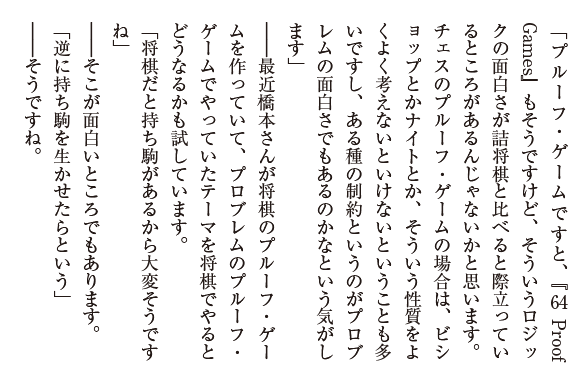 「プルーフ・ゲームですと、『64 Proof
Games』もそうですけど、そういうロジッ
クの面白さが詰将棋と比べると際立ってい
るところがあるんじゃないかと思います。
チェスのプルーフ・ゲームの場合は、ビシ
ョップとかナイトとか、そういう性質をよ
くよく考えないといけないということも多
いですし、ある種の制約というのがプロブ
レムの面白さでもあるのかなという気がし
ます」
――最近橋本さんが将棋のプルーフ・ゲー
ムを作っていて、プロブレムのプルーフ・
ゲームでやっていたテーマを将棋でやると
どうなるかも試しています。
「将棋だと持ち駒があるから大変そうです
ね」
――そこが面白いところでもあります。
「逆に持ち駒を生かせたらという」
――そうですね。